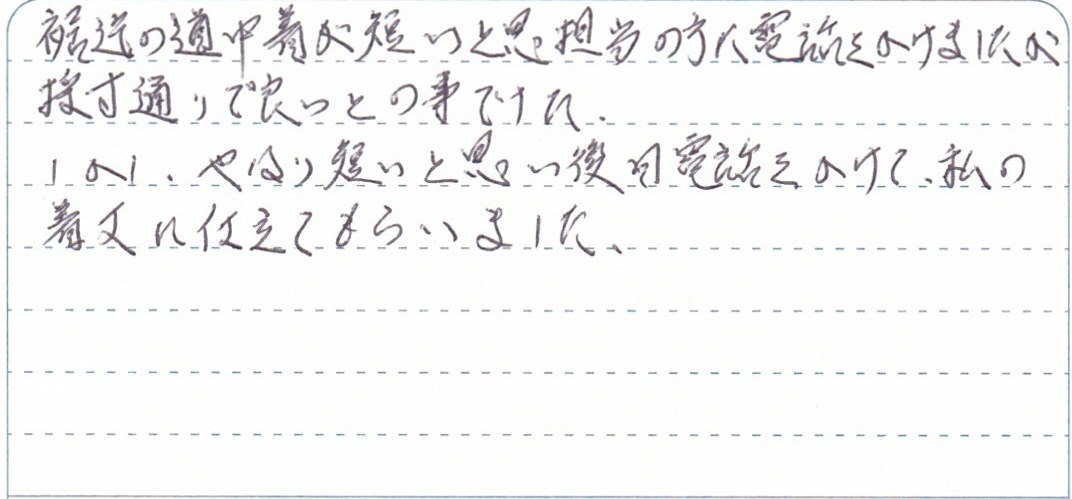 裾迄の道中着が短いと思担当の方に電話をかけましたが
採寸通りで良いとの事でした.
しかし、やはり短いと思い後日電話をかけて、私の
着丈に仕立てもらいました、